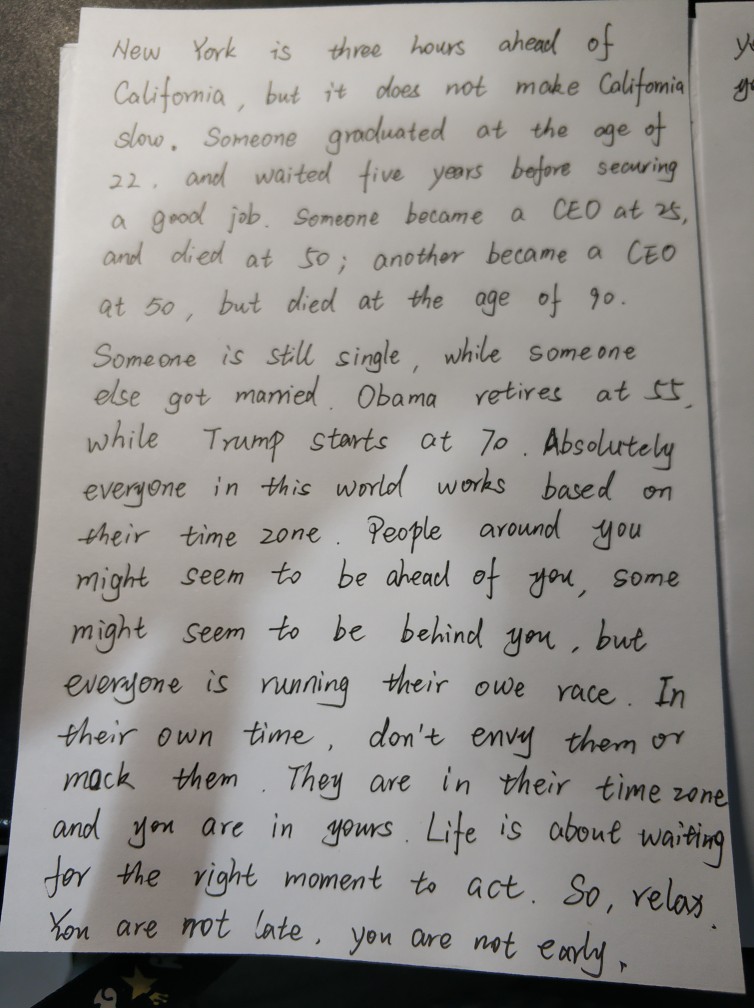 New York is three hours ahead of
California, but it does not make California
slow. Someone graduated at the age of
22, and waited five years before securing
a good job. Someone became a CEO at 25,
and died at 50; another became a CEO
at 50, but died at the age of 90.
Someone is still single, while someone
else got married. Obama retires at 55,
while Trump starts at 70. Absolutely
everyone in this world works based on
their time zone. People around you
might seem to be ahead of you, some
might seem to be behind you, but
everyone is running their owe race. In
their own time, don't envy them or
mock them. They are in their time zone
and you are in yours. Life is about waiting
for the right moment to act. So, relax.
You are not late, you are not early.